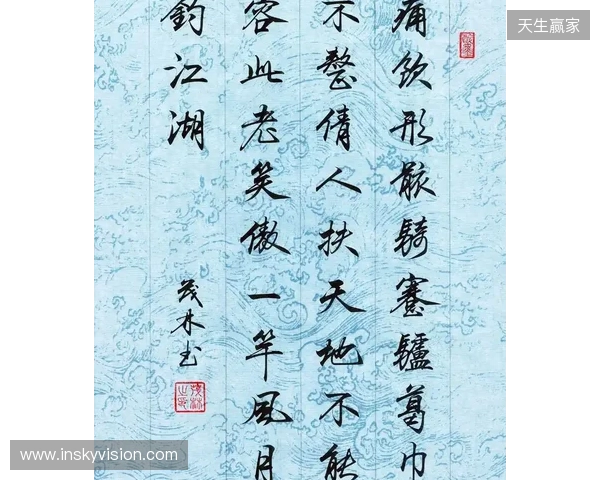 天生赢家
痛飲形骸騎蹇驢葛巾
不整倩人扶天地不能
容此老笑傲一竿風月
釣江湖
茂林书
www.inskyvision.com